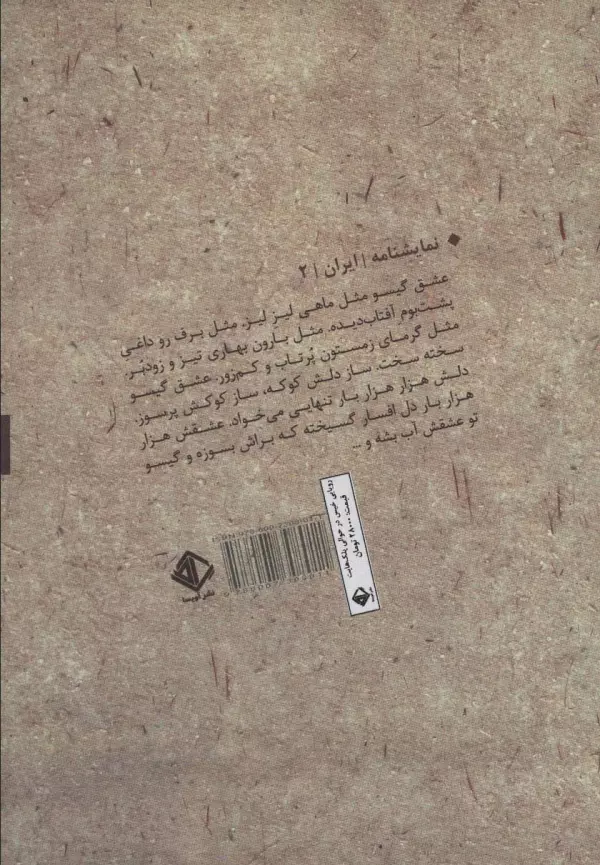 نمایشنامه | ایران | ۲
عشق گیسو مثل ماهی لیز لیز، مثل برف رو داغی
پشت‌بوم آفتاب‌دیده. مثل بارون بهاری تیز و زودبُر.
مثل گرمای زمستون پُرتاب و کم‌زور. عشق گیسو
سخته سخت. ساز دلش کوکه، ساز کوکش پرسوز.
دلش هزار هزار بار تنهایی می‌خواد. عشقش هزار
هزار بار دل افسار گسیخته که براش بسوزه و گیسو
تو عشقش آب بشه و ...
رویایی خیس در حوالی پلک‌هایت
قیمت: ۲۸۰۰۰ تومان